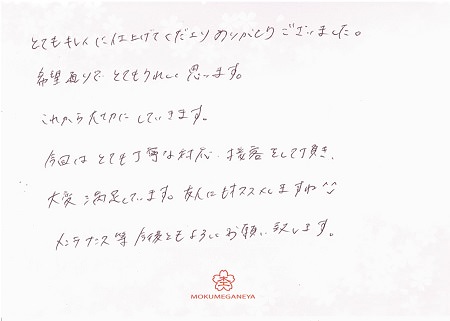 とてもキレイに仕上げてくださりありがとうございました。
希望通りで とてもうれしく思います。
これから大切にしていきます。
今回は とても丁寧な対応、接客をして頂き、
大変 満足しています。友人にもオススメしますね
メンテナンス等 今後ともよろしくお願い致します。
MOKUMEGANEYA